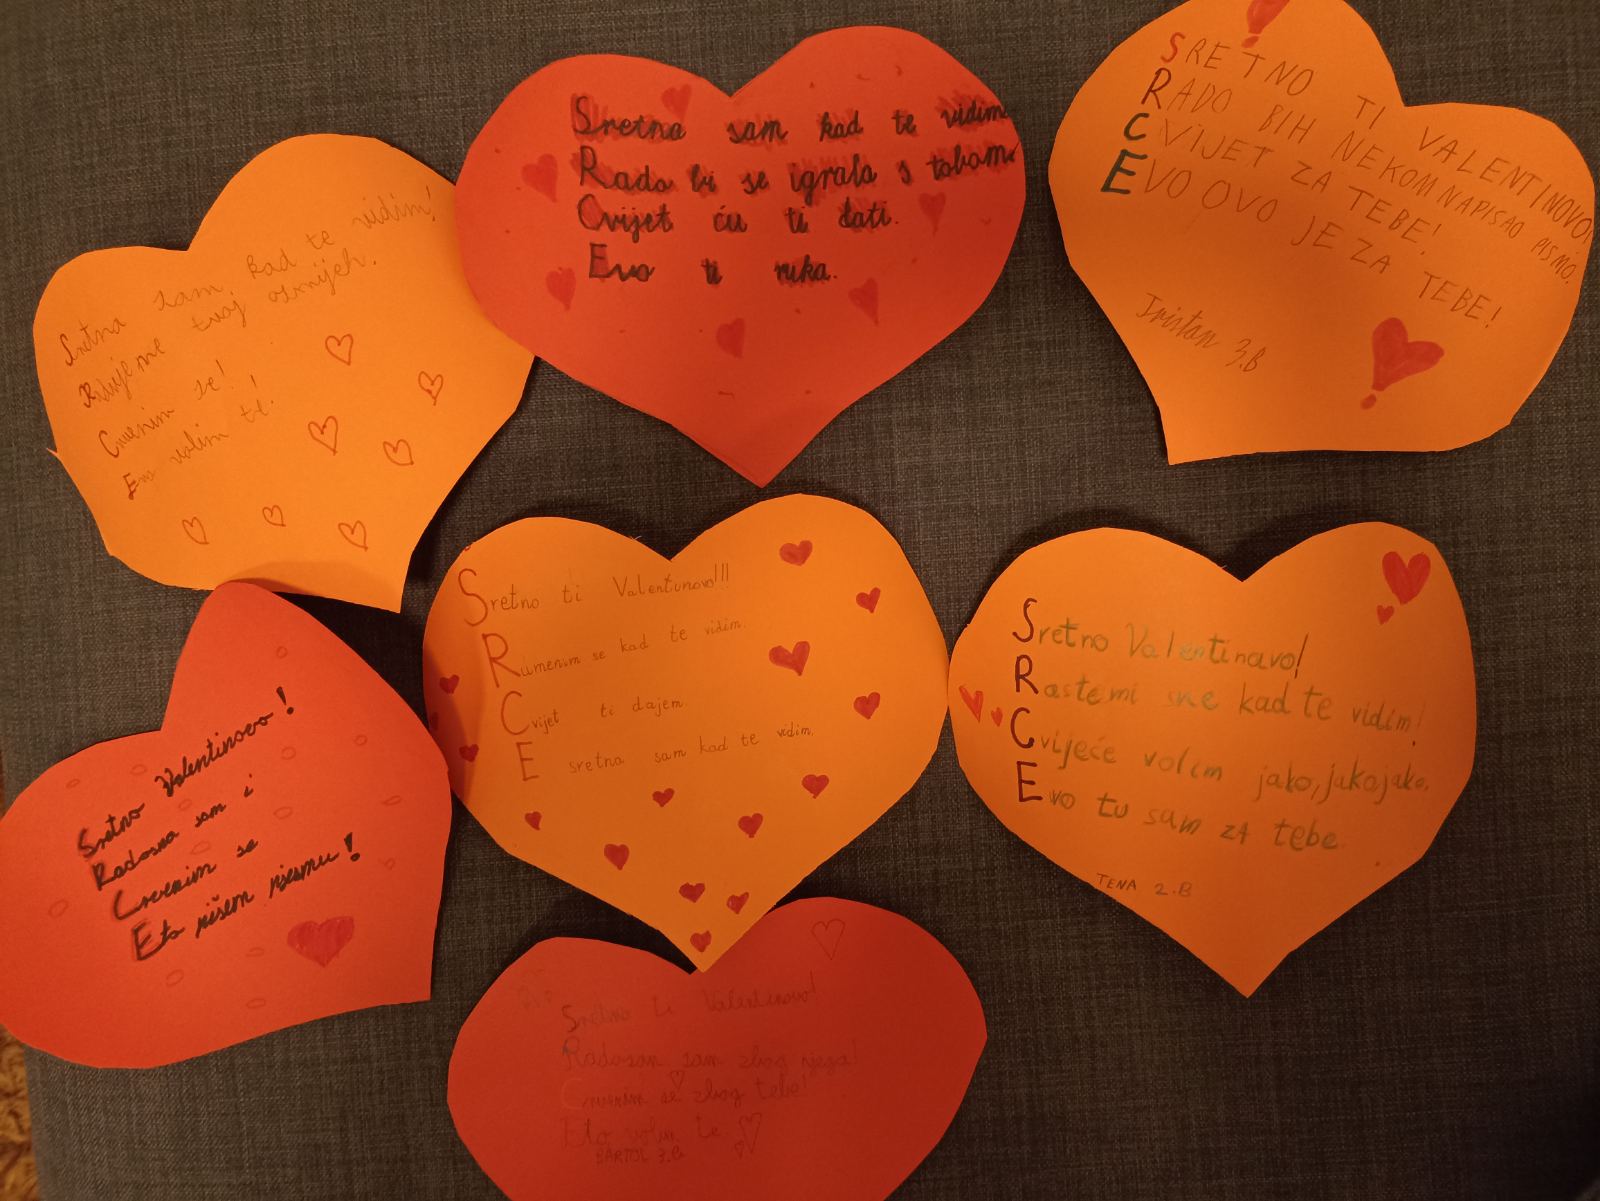 Sretna sam kad te vidim!
tvoj osmijeh.
Crvenim se!
Evo volim te!
Sretna sam kad te vidim
Rado bi se igrala s tobom
Cvijet ću ti dati.
Evo ti ruka.
SRETNO TI VALENTINOVO!
RADO BIH NEKOM NAPISAO PISMO.
CVIJET ZA TEBE!
EVO OVO JE ZA TEBE!
Tristan 3.B
Sretno Valentinovo!
Radosna sam i
Crvenim se
Eto pišem pjesmu!
Sretno ti Valentunovo!!!
Rumenim se kad te vidim.
Cvijet ti dajem.
E sretna sam kad te vidim.
Sretno Valentinavo!
Raste mi sne kad te vidim!
Cvijeće volim jako, jako, jako.
Evo tu sam zA tebe.
TENA 2.B
Sretno ti Valentinovo!
Radosan sam zbog njega!
Crvenim se zbog tebe!
Eto volim te
BARTOL